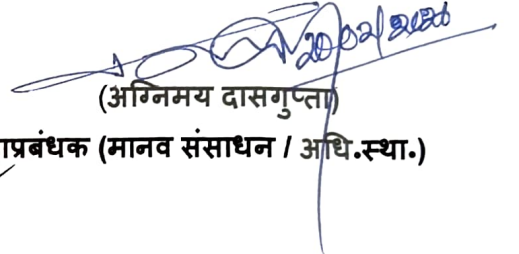 20/02/2020
(अग्निमय दासगुप्ता)
ाप्रबंधक (मानव संसाधन / अधि.स्था.)